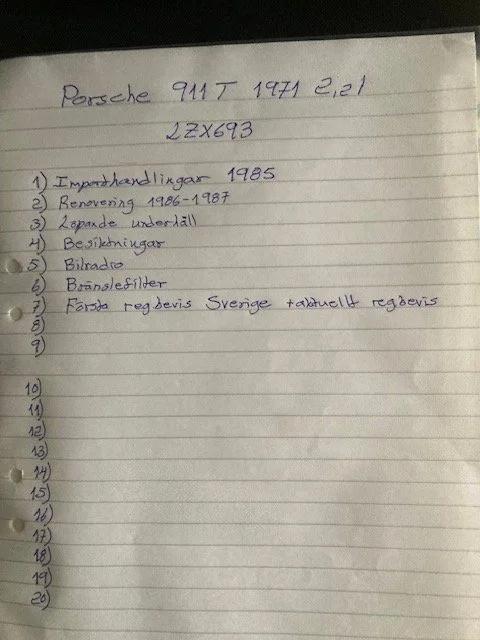 Porsche 911T 1971 2,2l
LZX693
1) Importhandlingar 1985
2) Renovering 1986-1987
3) Löpande underhåll
4) Besiktningar
5) Bilradio
6) Bränslefilter
7) Första regbevis Sverige + aktuellt regbevis
8)
9)
10)
11)
12)
13)
14)
15)
16)
17)
18)
19)
20)